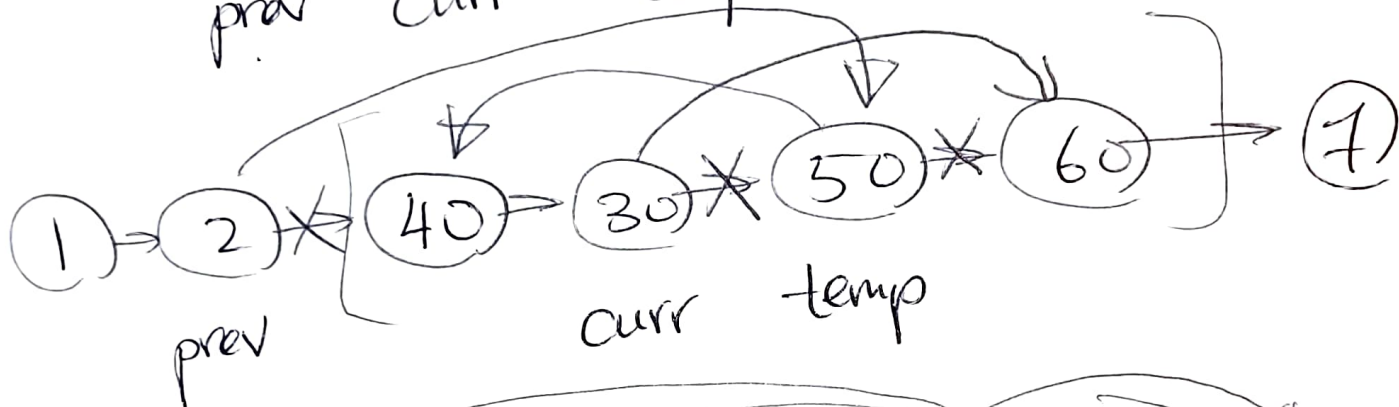 prev curr
1 2 40 30 50 60 7
prev curr temp